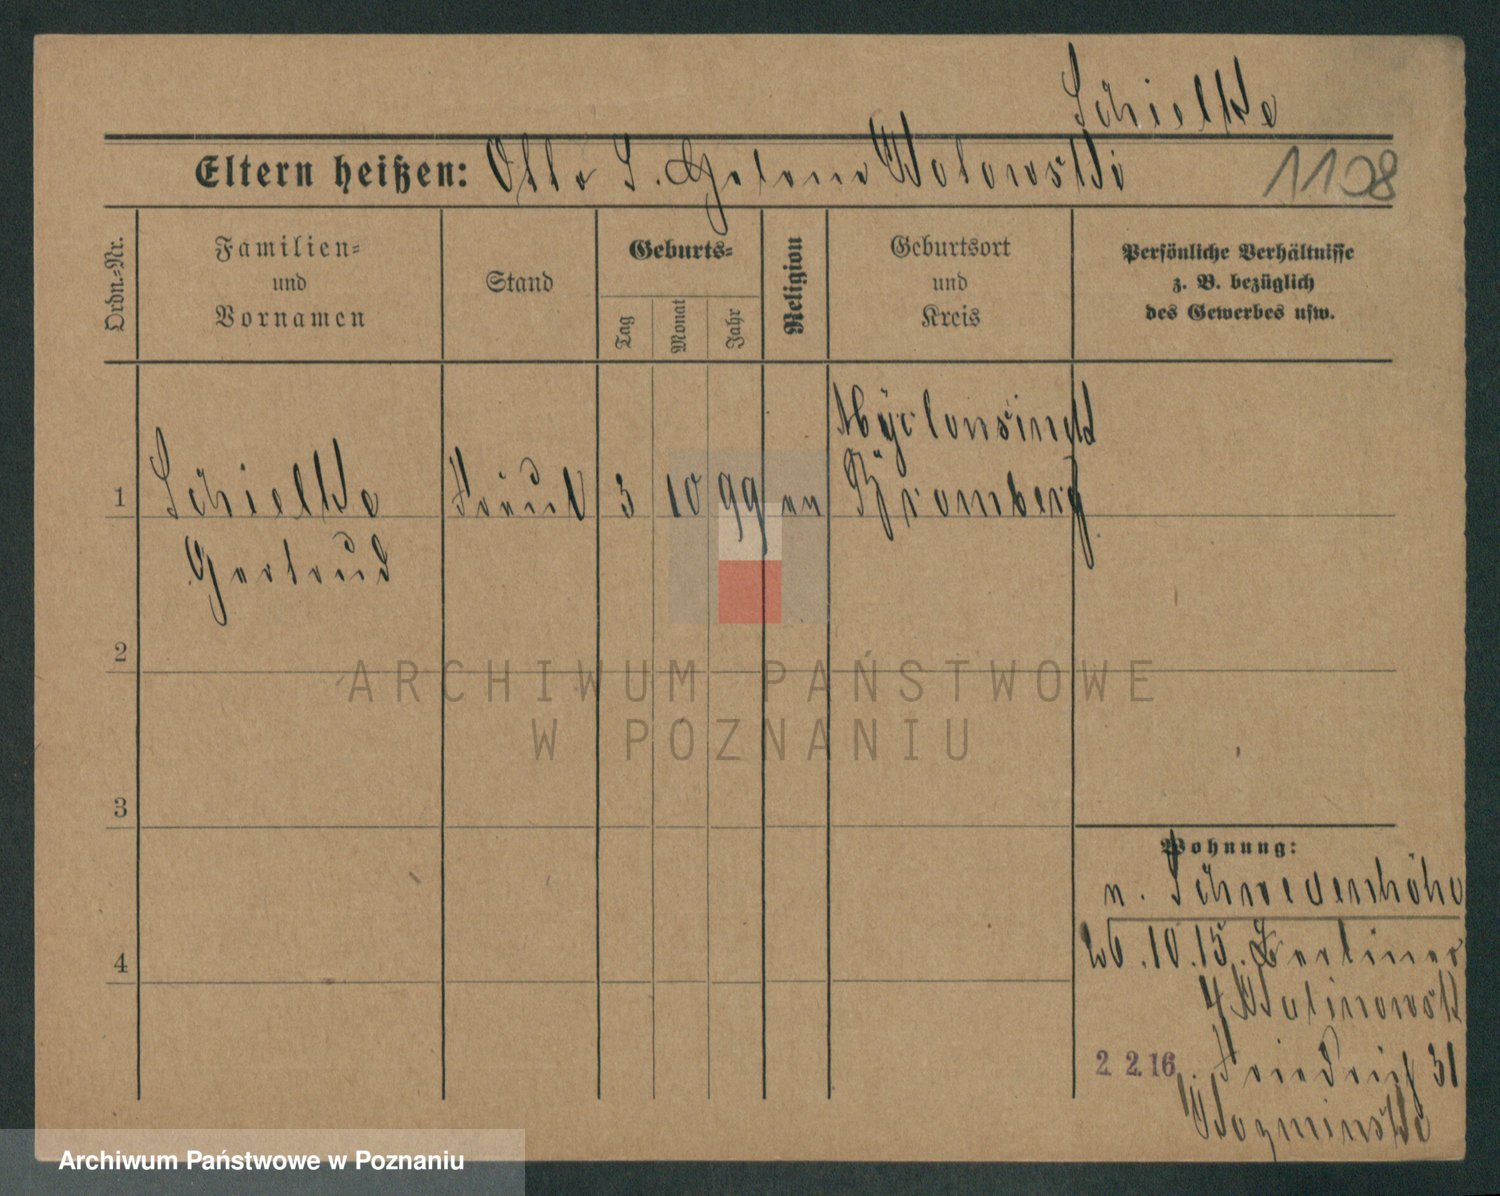 Schielke
Eltern heißen: Otto S. Helene Wolowski
1108
Ordn.-Nr.
Familien-
und
Vornamen
Stand
Geburts-
Tag
Monat
Jahr
Religion
Geburtsort
und
Kreis
Persönliche Verhältnisse
z. B. bezüglich
des Gewerbes usw.
1
Schielke
Gertrud
Fräul
3
10
99
ev
Bromberg
2
3
4
Wohnung:
n. Schwedenhöhe
26.10.15. Berliner
4
2. 2. 16. Friedrich 31
ARCHIWUM PAŃSTWOWE
W POZNANIU
Archiwum Państwowe w Poznaniu